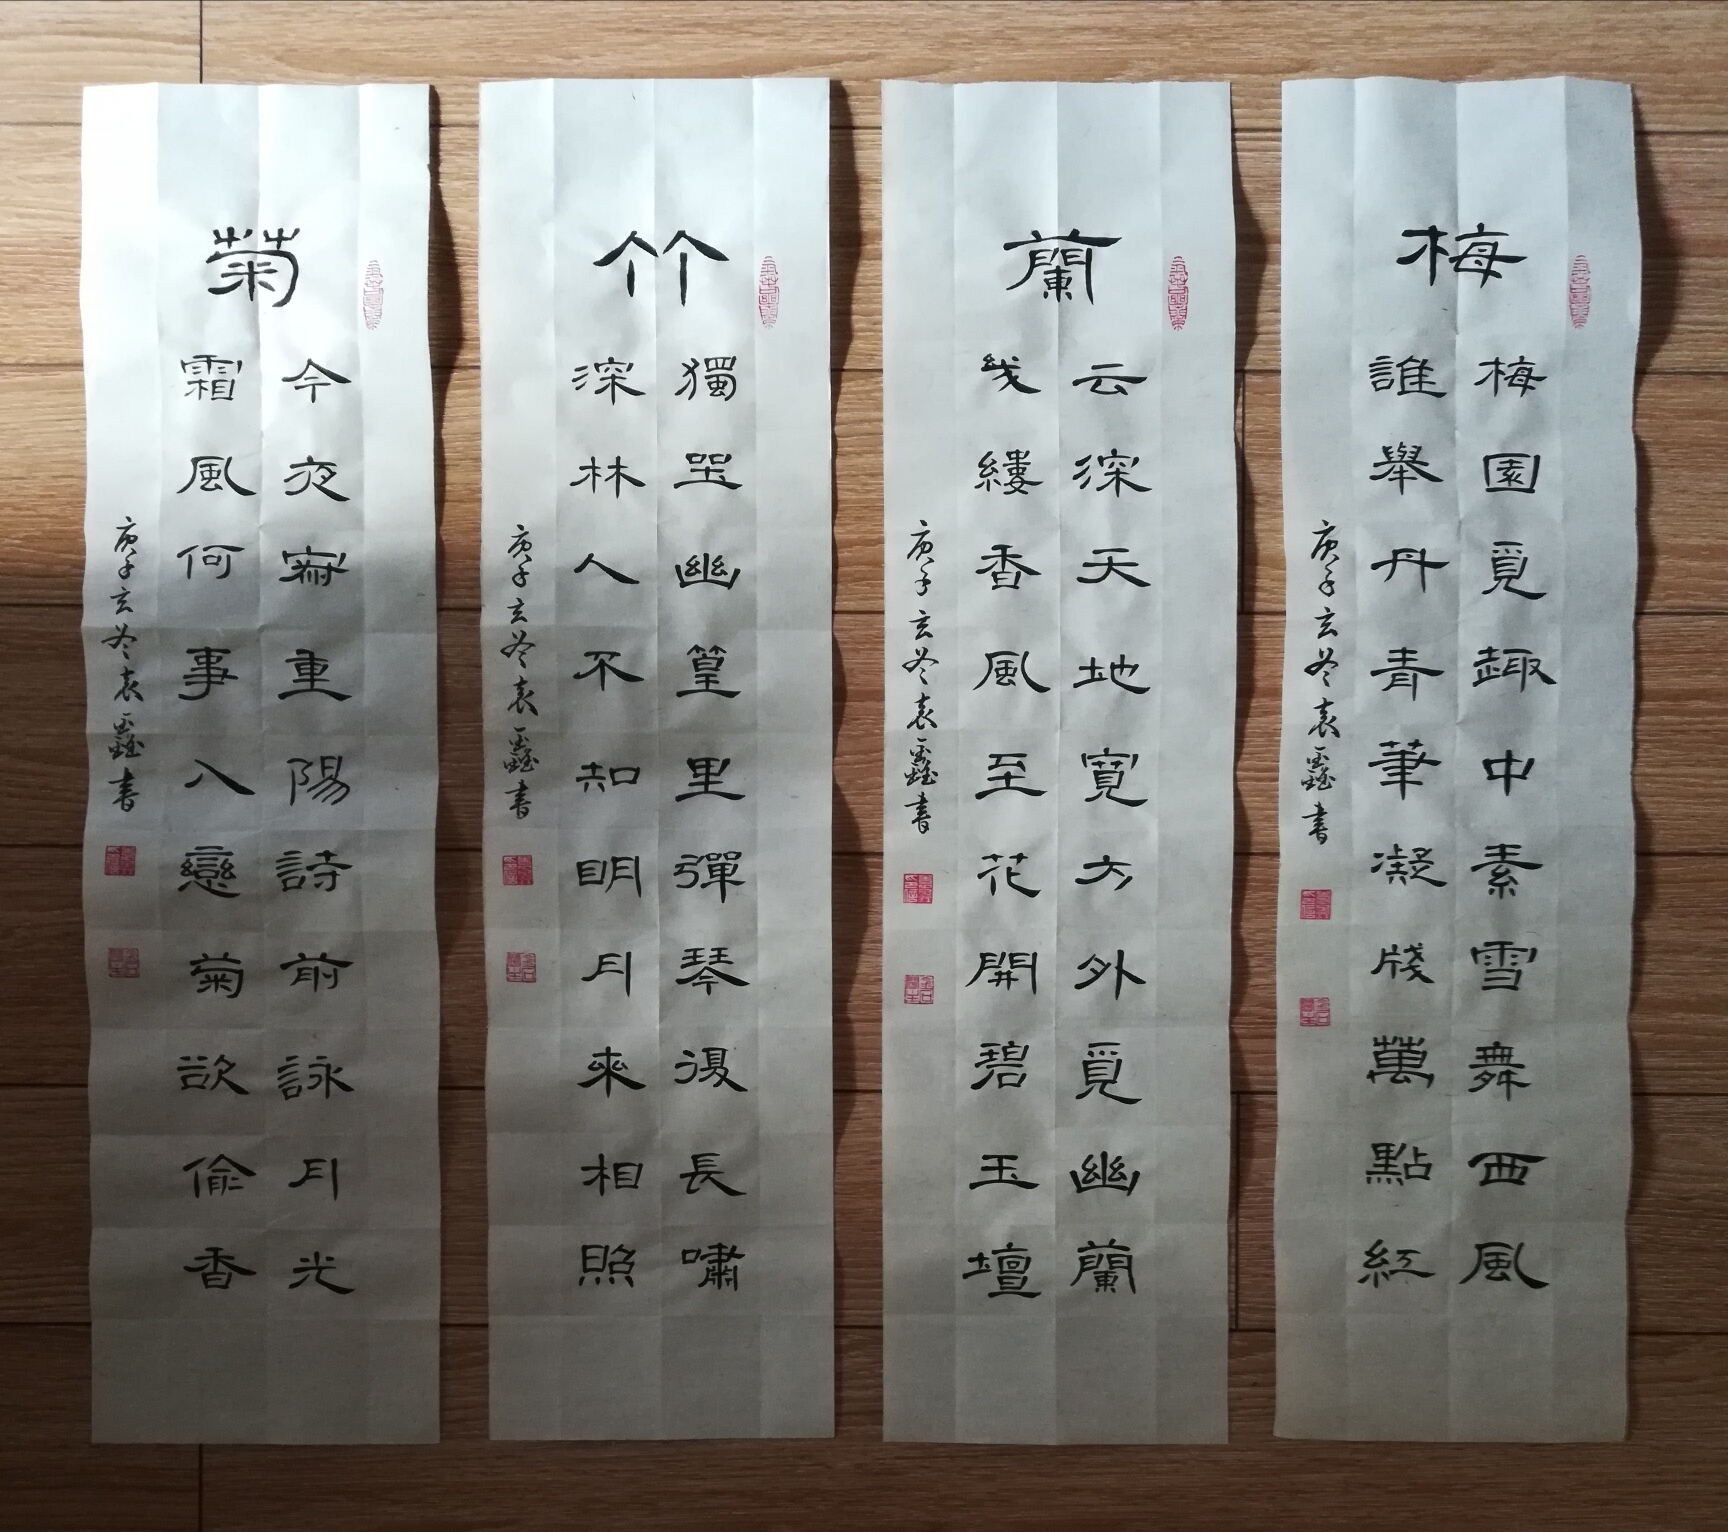 梅
梅園覓趣中素雪舞西風
誰舉丹青筆凝牋萬點紅
庚子玄冬袁書
蘭
云深天地寬方外覓幽蘭
幾縷香風至花開碧玉壇
庚子玄冬袁書
竹
獨坐幽篁里彈琴復長嘯
深林人不知明月來相照
庚子玄冬袁書
菊
今夜寂重陽詩前詠月光
霜風何事入戀菊欲偷香
庚子玄冬袁書